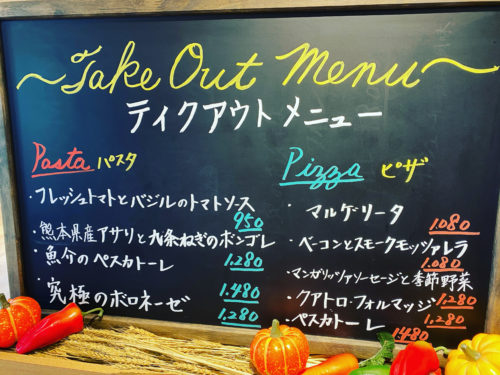 ~Take Out Menu~
ティクアウトメニュー
Pasta パスタ
・フレッシュトマトとバジルのトマトソース
950
・熊本県産アサリと九条ねぎのボンゴレ
1.280
・魚介のペスカトーレ
1.480
・究極のボロネーゼ
1.280
Pizza ピザ
・マルゲリータ
1.080
・ベーコンとスモークモッツァレラ
1.080
・マンガリッツァソーセージと季節野菜
1.280
・クアトロ・フォルマッジ
1.280
・ペスカトーレ
1480